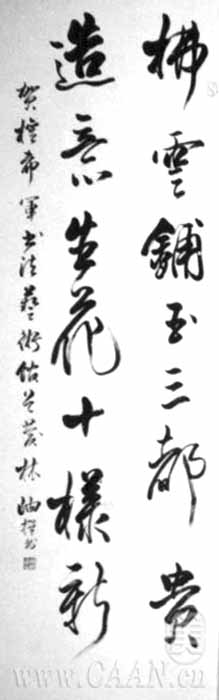 拂雲鋪玉三都貴
造意生花十樣新
賀權希軍書法藝術館 林岫撰書
www.CAAN.cn